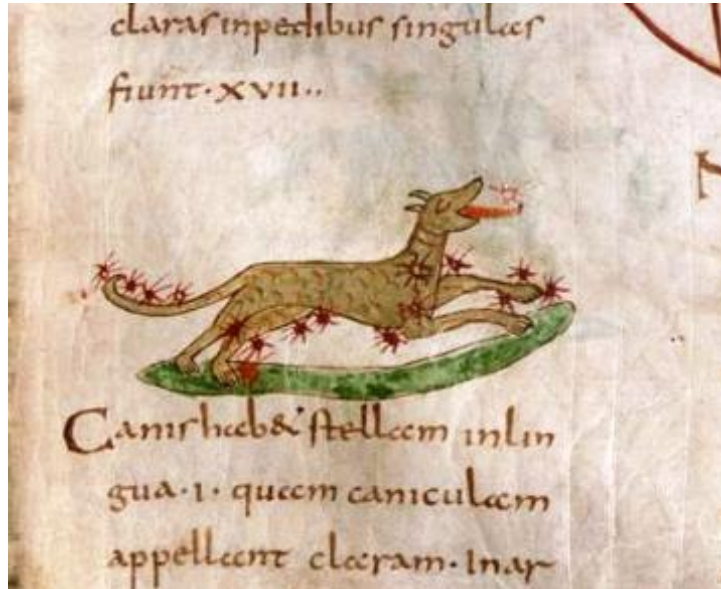 claras inpedibus singulas
fiunt · xvii ··
Canis hab& stellam inlin
gua · i · quam caniculam
appellant claram · Inar